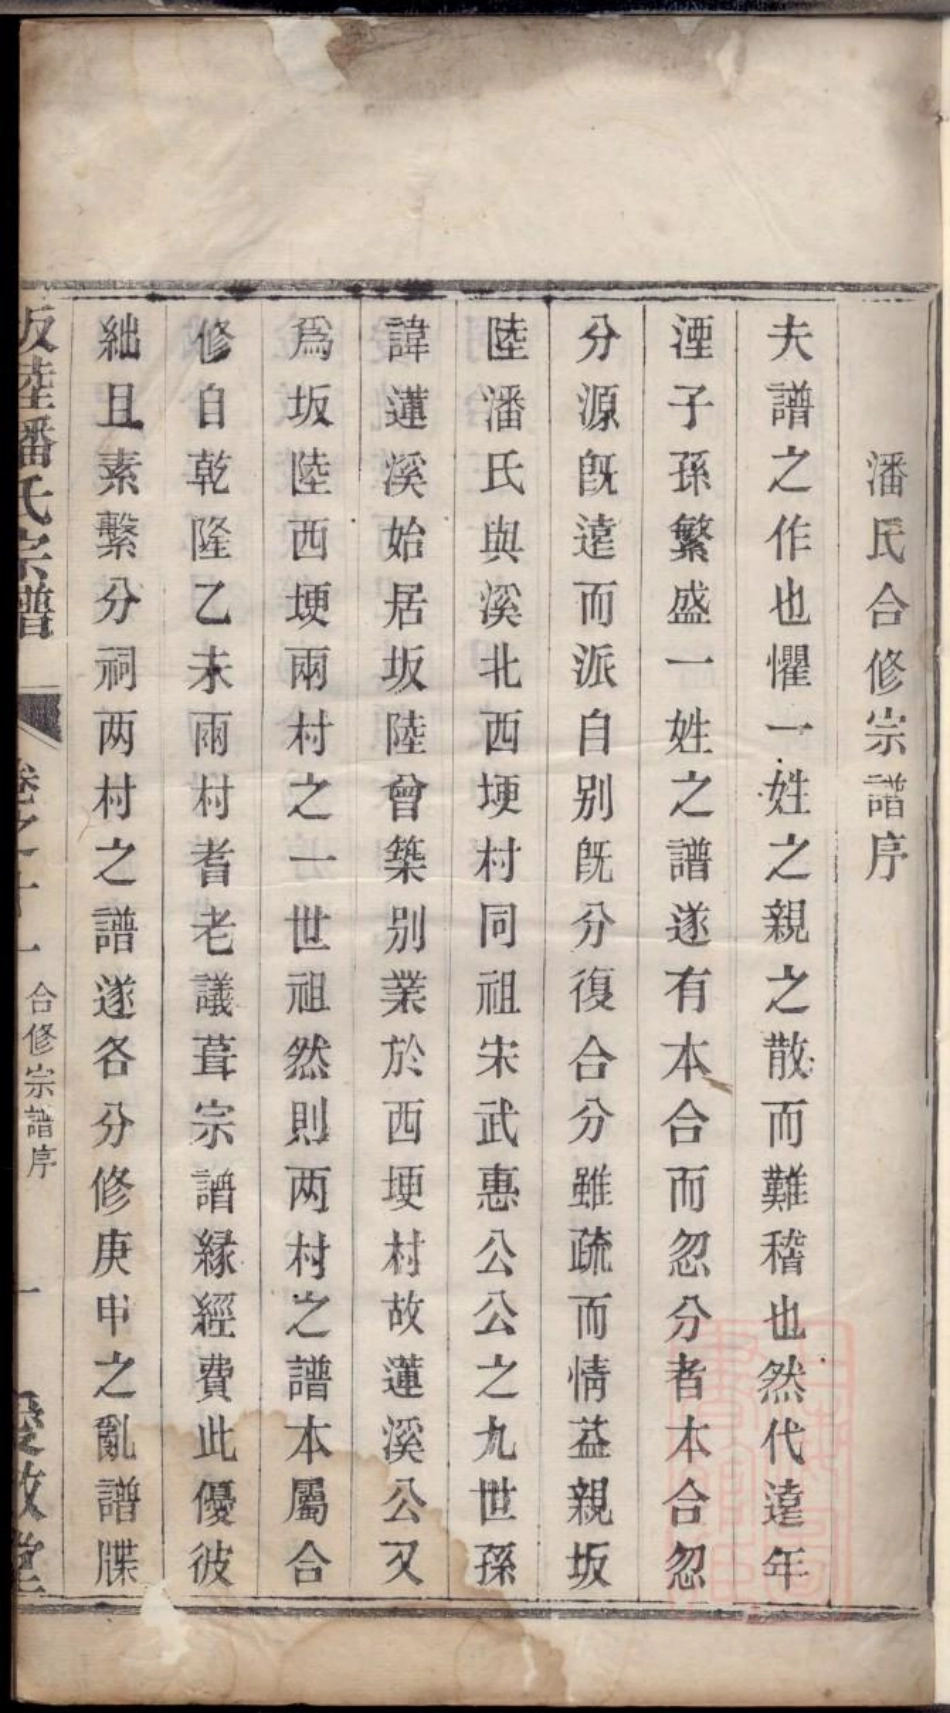 潘氏合修宗譜序
夫譜之作也懼一姓之親之散而難稽也然代遠年
湮子孫繁盛一姓之譜遂有本合而忽分者本合忽
分源旣遠而派自別旣分復合分雖疏而情益親坂
陸潘氏與溪北西埂村同祖宋武惠公公之九世孫
諱蓮溪始居坂陸曾築別業於西埂村故蓮溪公又
爲坂陸西埂兩村之一世祖然則两村之譜本屬合
修自乾隆乙未兩村耆老議葺宗譜緣經費此優彼
絀且素繫分祠两村之譜遂各分修庚申之亂譜牒
坂陸潘氏宗譜
卷之十一
合修宗譜序
一